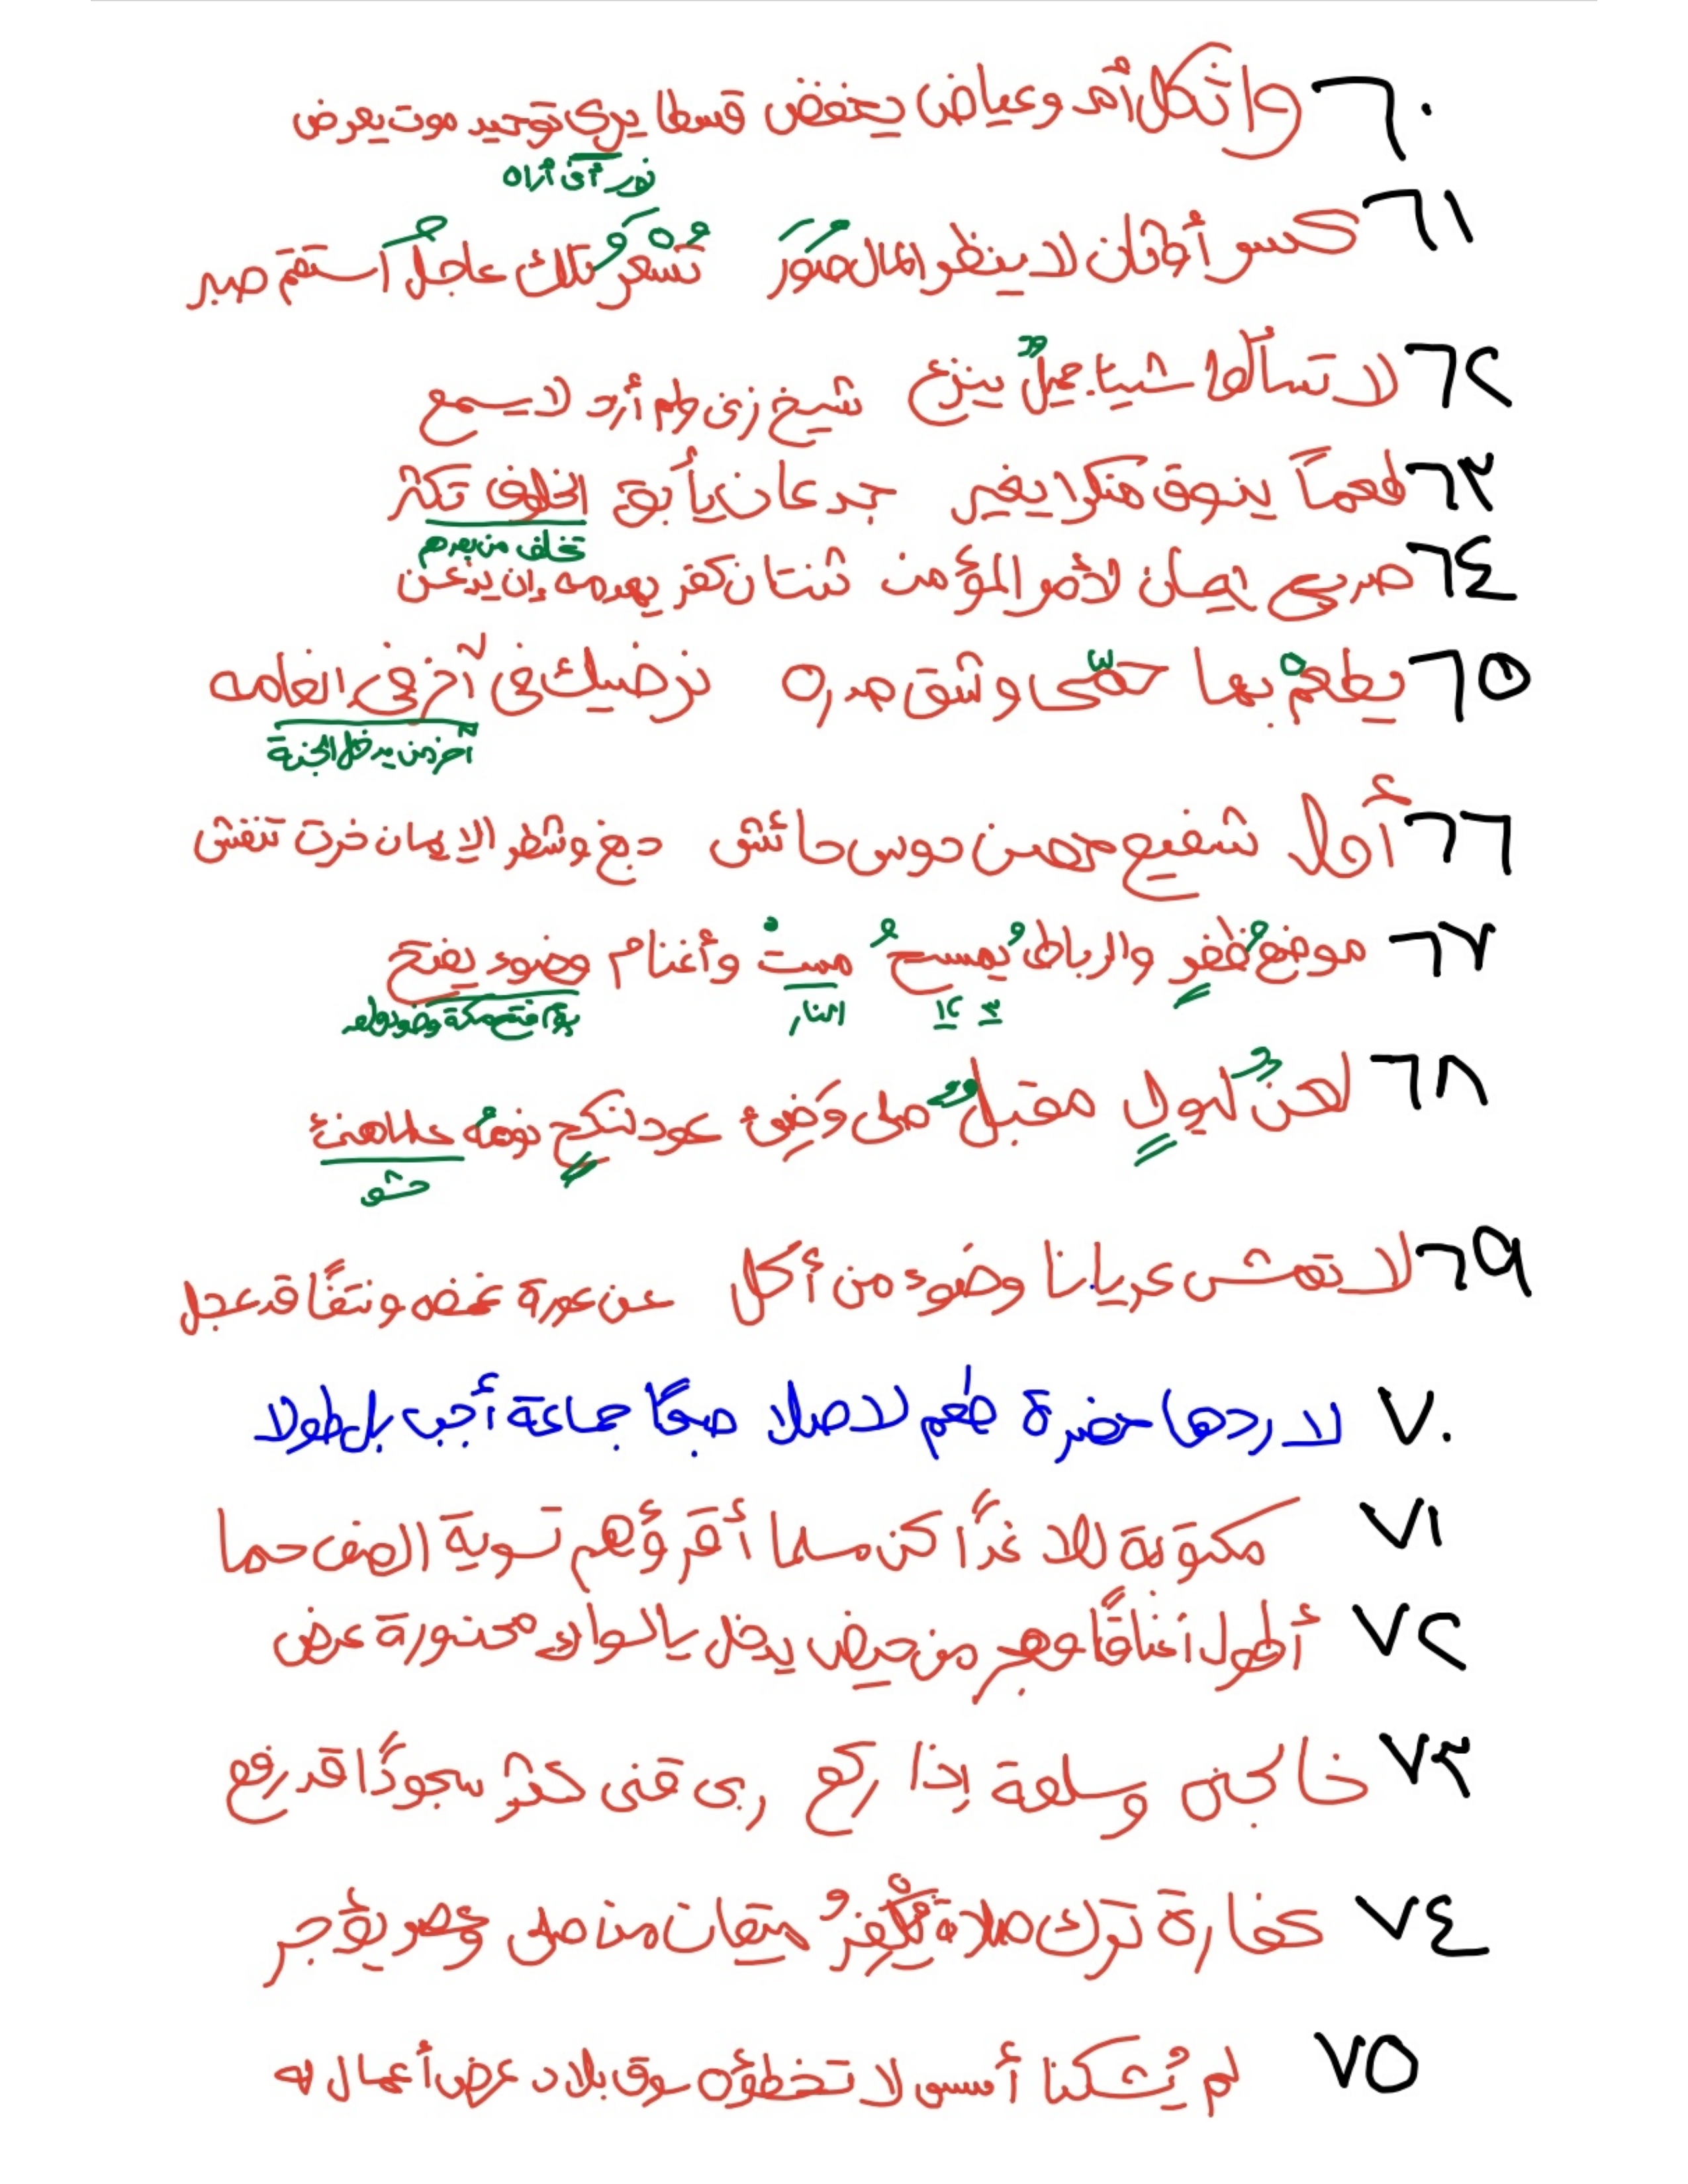 ٦٠ واثكل أمه وعياض يخفض قسطا يرى توحيد موت يعرض
نور أنى أراه
٦١ كسر أوثان لا ينظر المال صور تسعر تلك عاجل استقم صبر
٦٢ لا تسألها شيئا جميل ينزع شيخ زنى ولم أرد لا يسمع
٦٣ طعماً يذوق منكرا يغير جدعان يأبق الخلوف تكثر
تخلف من بعدهم
٦٤ صريح إيمان لأمر المؤمن ثنتان كفر يهدمه إن يذعن
٦٥ يطعم بها حمى وشق صدره نرضيك في آخر في العامه
آخر من يدخل الجنة
٦٦ أمل شفيع حصن دوس حائش دبغ وشطر الإيمان خرت تنفش
٦٧ موضع ظفر والرباط يمسح مست وأغنام وضوء يفتح
٣ ١٤ النار يوم فتح مكة وضوء واحد
٦٨ لحن لبول مقبل صلى وضئ عود لنكح نومه علاهنئ
حشو
٦٩ لا تمش عريانا وضوء من أكل عن عورة غضه ونتفًا قد عجل
٧٠ لا ردها حضرة طعم لا صلا صبحًا جماعة أجب بل طولا
٧١ مكتوبة للا غدًا كن سلما أقرؤهم تسوية الصف حما
٧٢ أطول أعناقًا وهر من حيض يدخل بالسواك محذورة عرض
٧٣ خا كجن وسلعة إذا ركع ربى قنى كثر سجودًا قد رفع
٧٤ كفارة ترك صلاة تكفر ميقات منذ صلى وعصر يؤجر
٧٥ لم يُشكنا أمسى لا تخطؤه سوق بلاد عرض أعمال له